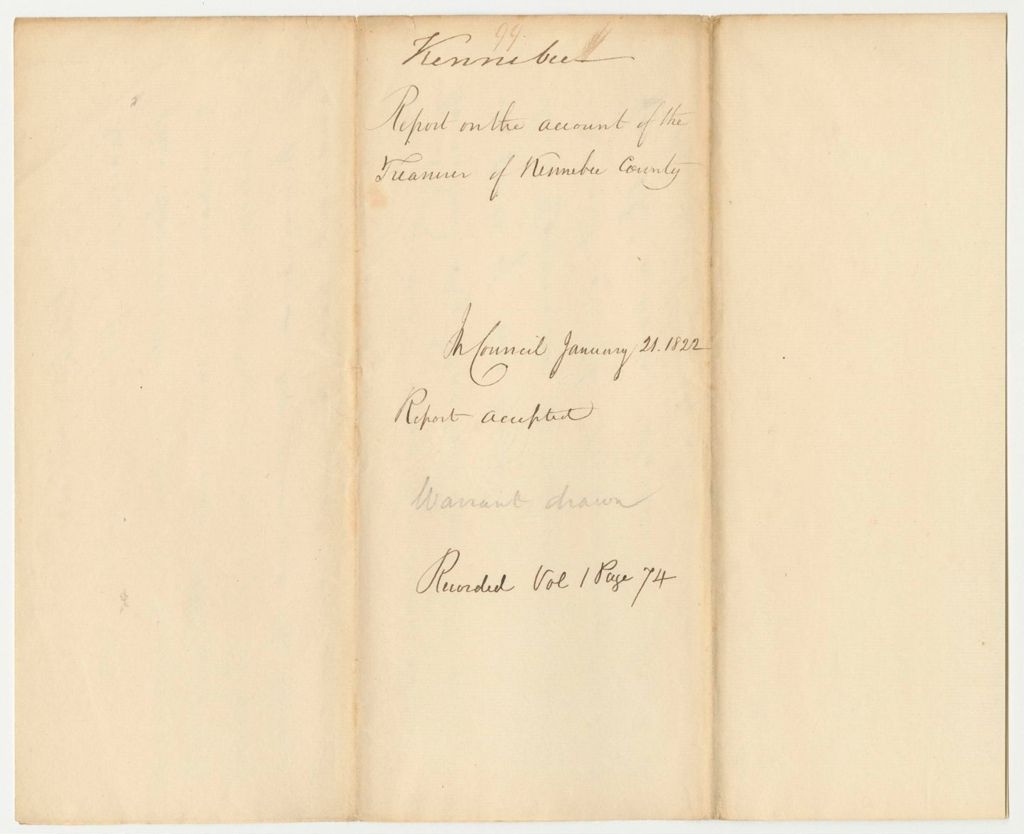 99.
Kennebec
Report on the account of the
Treasurer of Kennebec County
In Council January 21. 1822
Report accepted
Warrant drawn
Recorded Vol 1 Page 74